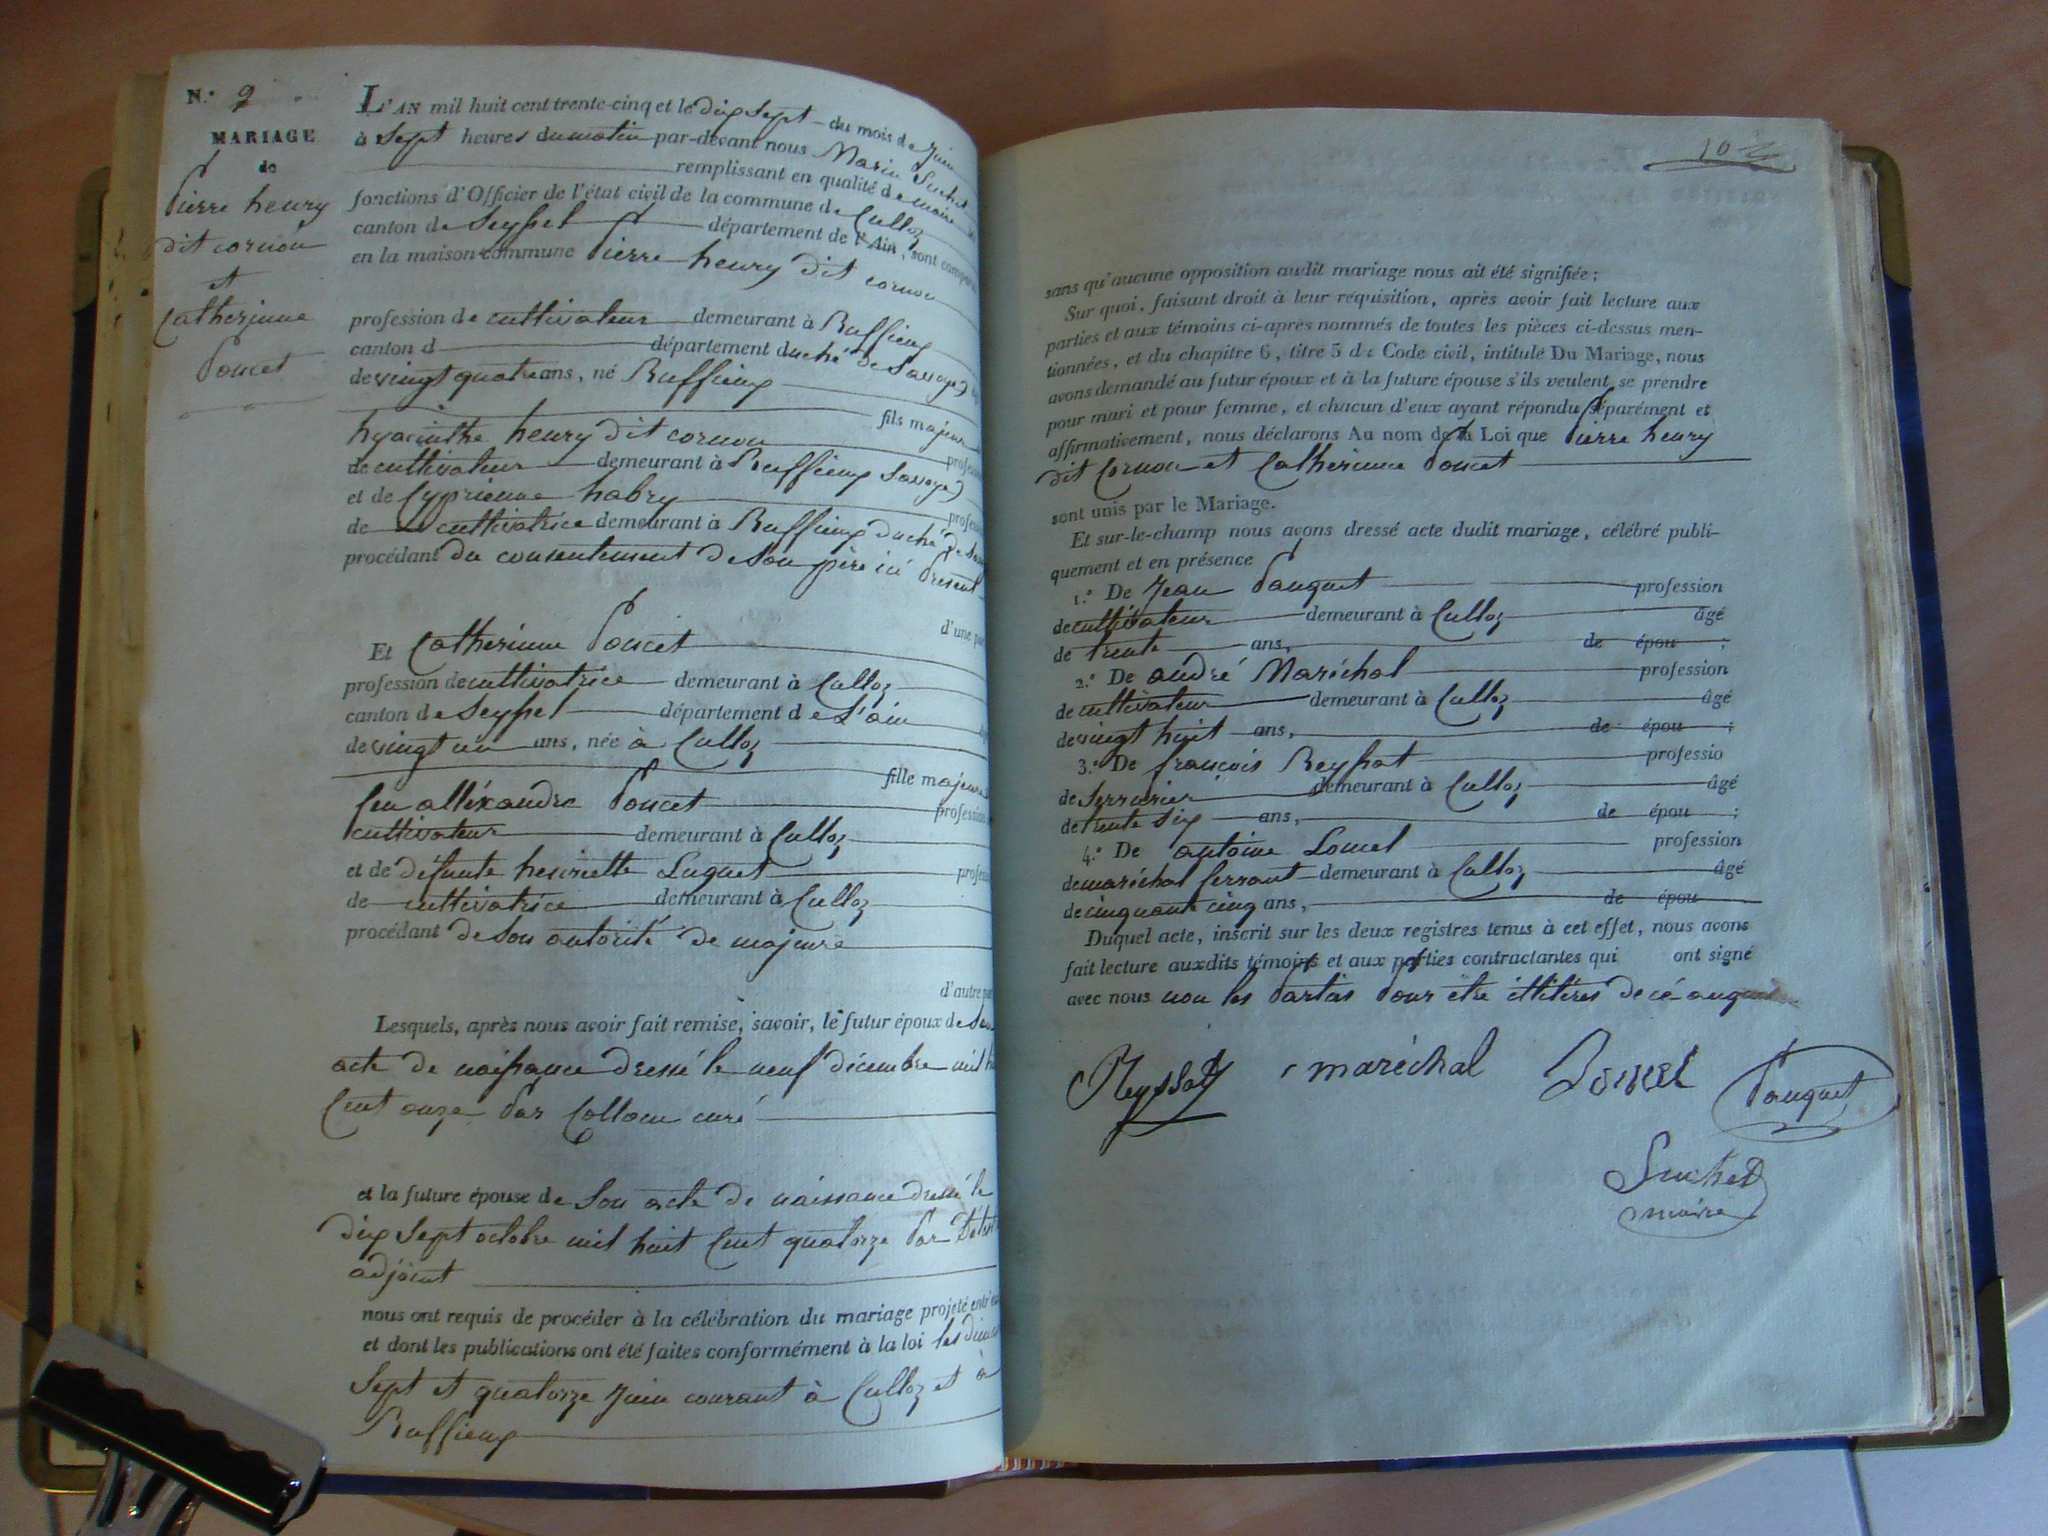 N.° 9
MARIAGE
de
Pierre henry
dit cornou
et
Catherinne
Poncet
L'AN mil huit cent trente-cinq et le dix Sept du mois de Juin
à Sept heures du matin par-devant nous Marin Suchet
remplissant en qualité de maire
fonctions d'Officier de l'état civil de la commune de Culloz
canton de Seyssel département de l'Ain, sont comparus
en la maison commune Pierre henry dit cornou
profession de cultivateur demeurant à Ruffieux
canton d département duché de Savoye)
de vingt quatre ans, né Ruffieux
fils majeur
hyacinthe henry dit cornou
de cultivateur demeurant à Ruffieux Savoye)
et de Cyprienne habry
de cultivatrice demeurant à Ruffieux duché de
procédant du consentement de Son père ici Présent
d'une part
Et Catherinne Poncet
profession de cultivatrice demeurant à Culloz
canton de Seyssel département de L'ain
de vingt un ans, née à Culloz
fille majeure
feu alléxandre Poncet profession
cultivateur demeurant à Culloz
et de défunte henriette Luquet
de cultivatrice demeurant à Culloz
procédant de Son autorité de majeure
d'autre part
Lesquels, après nous avoir fait remise, savoir, le futur époux de Son
acte de naissance dressé le neuf décembre mil
Cent onze Par Collom curé
et la future épouse de Son acte de naissance dressé le
dix Sept octobre mil huit Cent quatorze Par
adjoint
nous ont requis de procéder à la célébration du mariage projeté entr'eux
et dont les publications ont été faites conformément à la loi les
Sept et quatorze Juin courant à Culloz et à
Ruffieux
10
sans qu'aucune opposition audit mariage nous ait été signifiée;
Sur quoi, faisant droit à leur réquisition, après avoir fait lecture aux
parties et aux témoins ci-après nommés de toutes les pièces ci-dessus men-
tionnées, et du chapitre 6, titre 5 de Code civil, intitulé Du Mariage, nous
avons demandé au futur époux et à la future épouse s'ils veulent se prendre
pour mari et pour femme, et chacun d'eux ayant répondu séparément et
affirmativement, nous déclarons Au nom de la Loi que Pierre henry
dit Cornou et Catherinne Poncet
sont unis par le Mariage.
Et sur-le-champ nous avons dressé acte dudit mariage, célébré publi-
quement et en présence
1.° De Jean Pauquet profession
de cultivateur demeurant à Culloz âgé
de trente ans, de épou ;
2.° De andré Maréchal profession
de cultivateur demeurant à Culloz âgé
de vingt huit ans, de épou ;
3.° De françois Reyssat professio
de Serrurier demeurant à Culloz âgé
de trente Six ans, de épou ;
4.° De antoine Loucel profession
de maréchal ferrant demeurant à Culloz âgé
de cinquante cinq ans, de épou
Duquel acte, inscrit sur les deux registres tenus à cet effet, nous avons
fait lecture auxdits témoins et aux parties contractantes qui ont signé
avec nous non les Partis Pour être illitérés de cé
Reyssat maréchal Pauquet
Suchet
maire